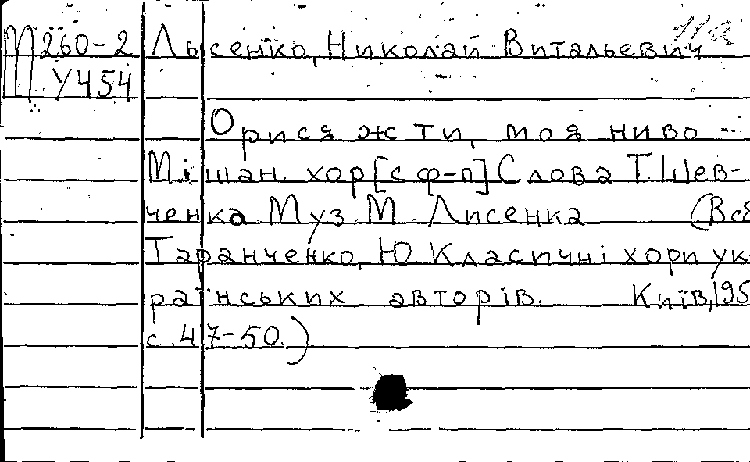 М260-2 Лысенко, Николай Витальевич
У454
Орися ж ти, моя ниво
Мішан. хор [с ф-п] Слова Т. Шев-
ченка Муз. М. Лисенка (В сб
Таранченко, Ю Класичні хори ук
раїнських авторів. Київ, 195
с. 47-50.)